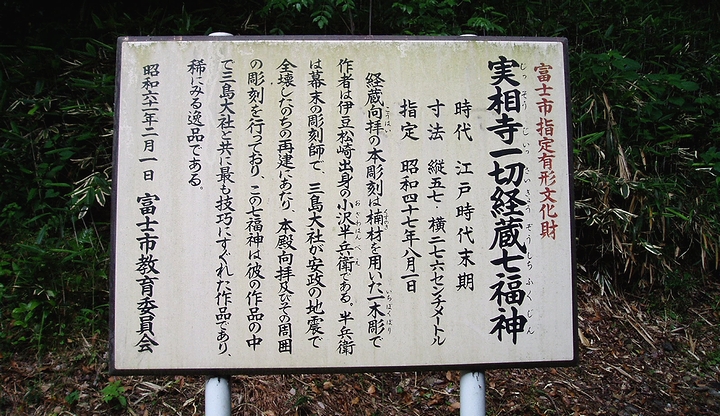 富士市指定有形文化財
実相寺一切経蔵七福神
時代 江戸時代末期
寸法 縦五七・横二七六センチメートル
指定 昭和四十七年八月一日
経蔵向拝の本彫刻は楠材を用いた一木彫で
作者は伊豆松崎出身の小沢半兵衛である。半兵衛
は幕末の彫刻師で、三島大社が安政の地震で
全壊したのちの再建にあたり、本殿向拝及びその周囲
の彫刻を行っており、この七福神は彼の作品の中
で三島大社と共に最も技巧にすぐれた作品であり、
稀にみる逸品である。
昭和六十一年二月一日 富士市教育委員会